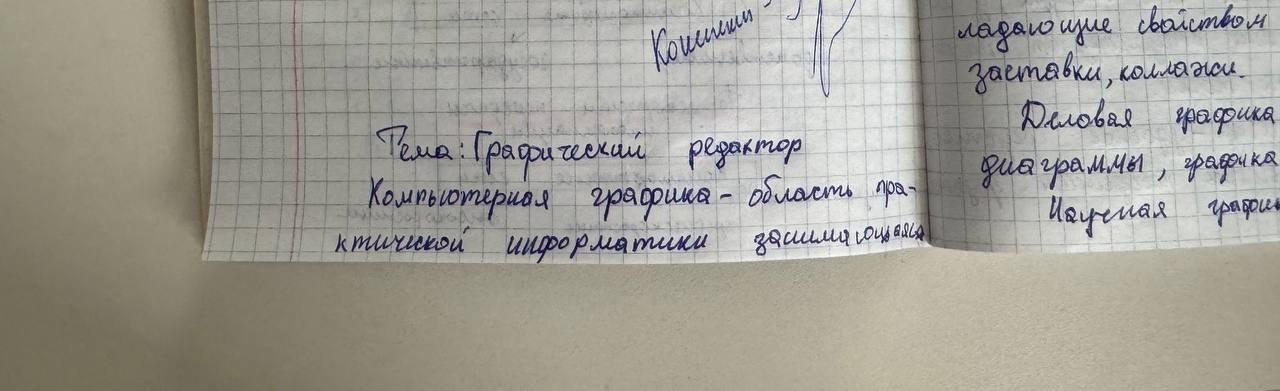 Тема: Графический редактор
Компьютерная графика - область пра-
ктической информатики занимающаяся
ладающие свойством
заставки, коллажи.
Деловая графика
диаграммы, графика
Научная график